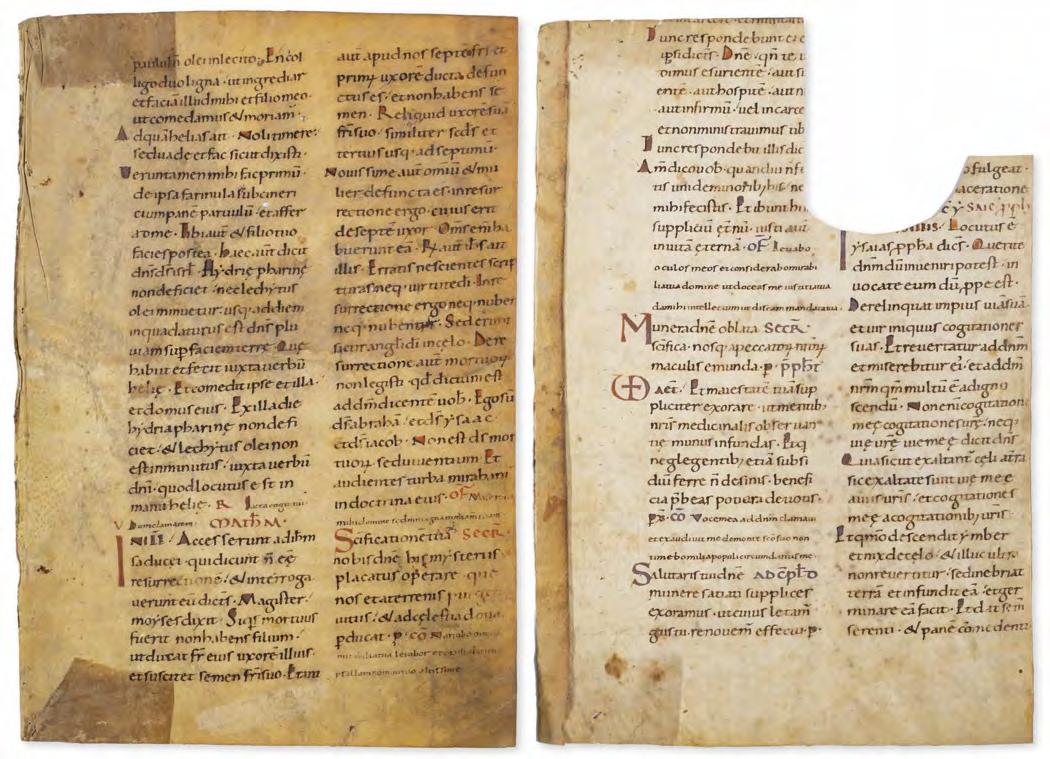 paululū olei in lecito. En col
ligo duo ligna . ut ingrediar
et faciā illud mihi et filio meo .
ut comedamus & moriam .
Ad quā helias ait . Noli timere .
sed uade et fac sicut dixisti .
Veruntamen mihi fac primū .
de ipsa farinula subcineri
cium pane paruulū . et affer
a me . tibi aut & filio tuo
facies postea . haec aut dicit
dn̄s ds̄ isrl̄ . hydrie pharine
non deficiet . nec lechytus
olei minuetur . usq . ad diem
in qua daturus est dn̄s plu
uiam sup faciem terrę . Quę
habiit et fecit iuxta uerbū
helię . Et comedit ipse et illa .
et domus eius . Ex illa die
hydria pharinę non defi
ciet . & lechytus olei non
est inminutus . iuxta uerbū
dn̄i . quod locutus est in
manu helię . R
Dum clamarem . MATH M .
IN ILL . Accesserunt ad ihm
saducei . qui dicunt n̄ eē
resurrectionē . & interroga
uerunt eū dicentes . Magister .
moyses dixit . Si qs mortuus
fuerit non habens filium .
ut ducat fr̄ eius uxorē illius .
et suscitet semen fr̄i suo . Erant
aut apud nos septe frī et
primꝰ uxore ducta defun
ctus es . et non habens se
men . Reliquid uxorē suā
fr̄i suo . similiter scds et
tertius usq . ad septimū .
Nouissime aut omiū & mu
lier defuncta es . in resur
rectione ergo . cuius erit
de septē uxor . Oms enī ha
buerunt eā . R aut ihs ait
illis . Erratis nescientes scrip
turas neq uirtutē dī . In re
surrectione ergo neq . nuber
neq . nubent . Sed erunt
sicut angli dī in celo . De re
surrectione aut mortuoꝝ
non legisti . qd dictum est
a ddm dicente uob . Ego sū
ds̄ abrahā . et ds̄ ysaac
et ds̄ iacob . Non est ds̄ mor
tuoꝝ sed uiuentium . Et
audientes turbę mirabant
in doctrina eius . OF
mihi domine scdm magnam
Scificationē tuā SECR .
nobis dnē his mysteriis
placatus operare . que
nos et a terrenis
uitiis . & ad cęlestia dona
pducat . p . CO Narrabo
psallam nomini tuo altissime
Tunc respondebunt ei
ipsi dicentes . Dnē . qn̄ te ui
dimus esuriente . aut si
ente . aut hospite . aut n
aut infirmū . uel in carce
et non ministrauimus tib
Tunc respondebit illis dic
Amdico uob . quandiu n̄ fe
tis uni de minorib; his ne
mihi fecistis . Et ibunt hii
suppliciū etnū . iusti aut
in uitā eternā . OF Leuabo
oculos meos et considerabo mirabi
lia tua domine ut doceas me iustitia tua
da mihi intellectum ut discam mandata tua
Munera dnē oblata SECR
scifica . nosq . a peccatoꝝ nrōꝝ
maculis emunda . p . PPHT
DAET . Et maiestatē tuā sup
pliciter exorare . ut mentib;
nrīs medicinalis obseruan
tię munus infundas . Et q
neglegentib; etiā subsi
diū ferre n̄ desinis . benefi
cia pbeas potiora deuotis .
pX . CO Voce mea ad dnm clamaui
et exaudiuit me de monte scō suo non
timebo milia populi circumdantis me .
Salutaris tui dnē AD CPLD
munere satiati supplices
exoramus . ut cuius letam
gustu . renouem effectu . p .
fulgeat .
maceratione
SAIE PPH
Locutus ē
ysaias ppha dics . Querite
dnm dū inueniri potest . in
uocate eum dū ppe est .
Derelinquat impius uiā suā
et uir iniquus cogitationes
suas . Et reuertatur ad dnm
et miserebitur ei . et ad dm
nrm qm multū ē ad igno
scendū . Non enī cogitation
meę cogitationes urę . neq .
uię urę uie meę dicit dns
Quia sicut exaltant celi a tra
sic exaltate sunt uię meę
a uiis uris . et cogitationes
meę a cogitationib; uris .
Et qmo descendit ymber
et nix de celo & illuc ultra
non reuertitur . sed inebriat
terrā et infundit eā . et ger
minare eā facit . Et dat sem
serenti . & panē comedenti